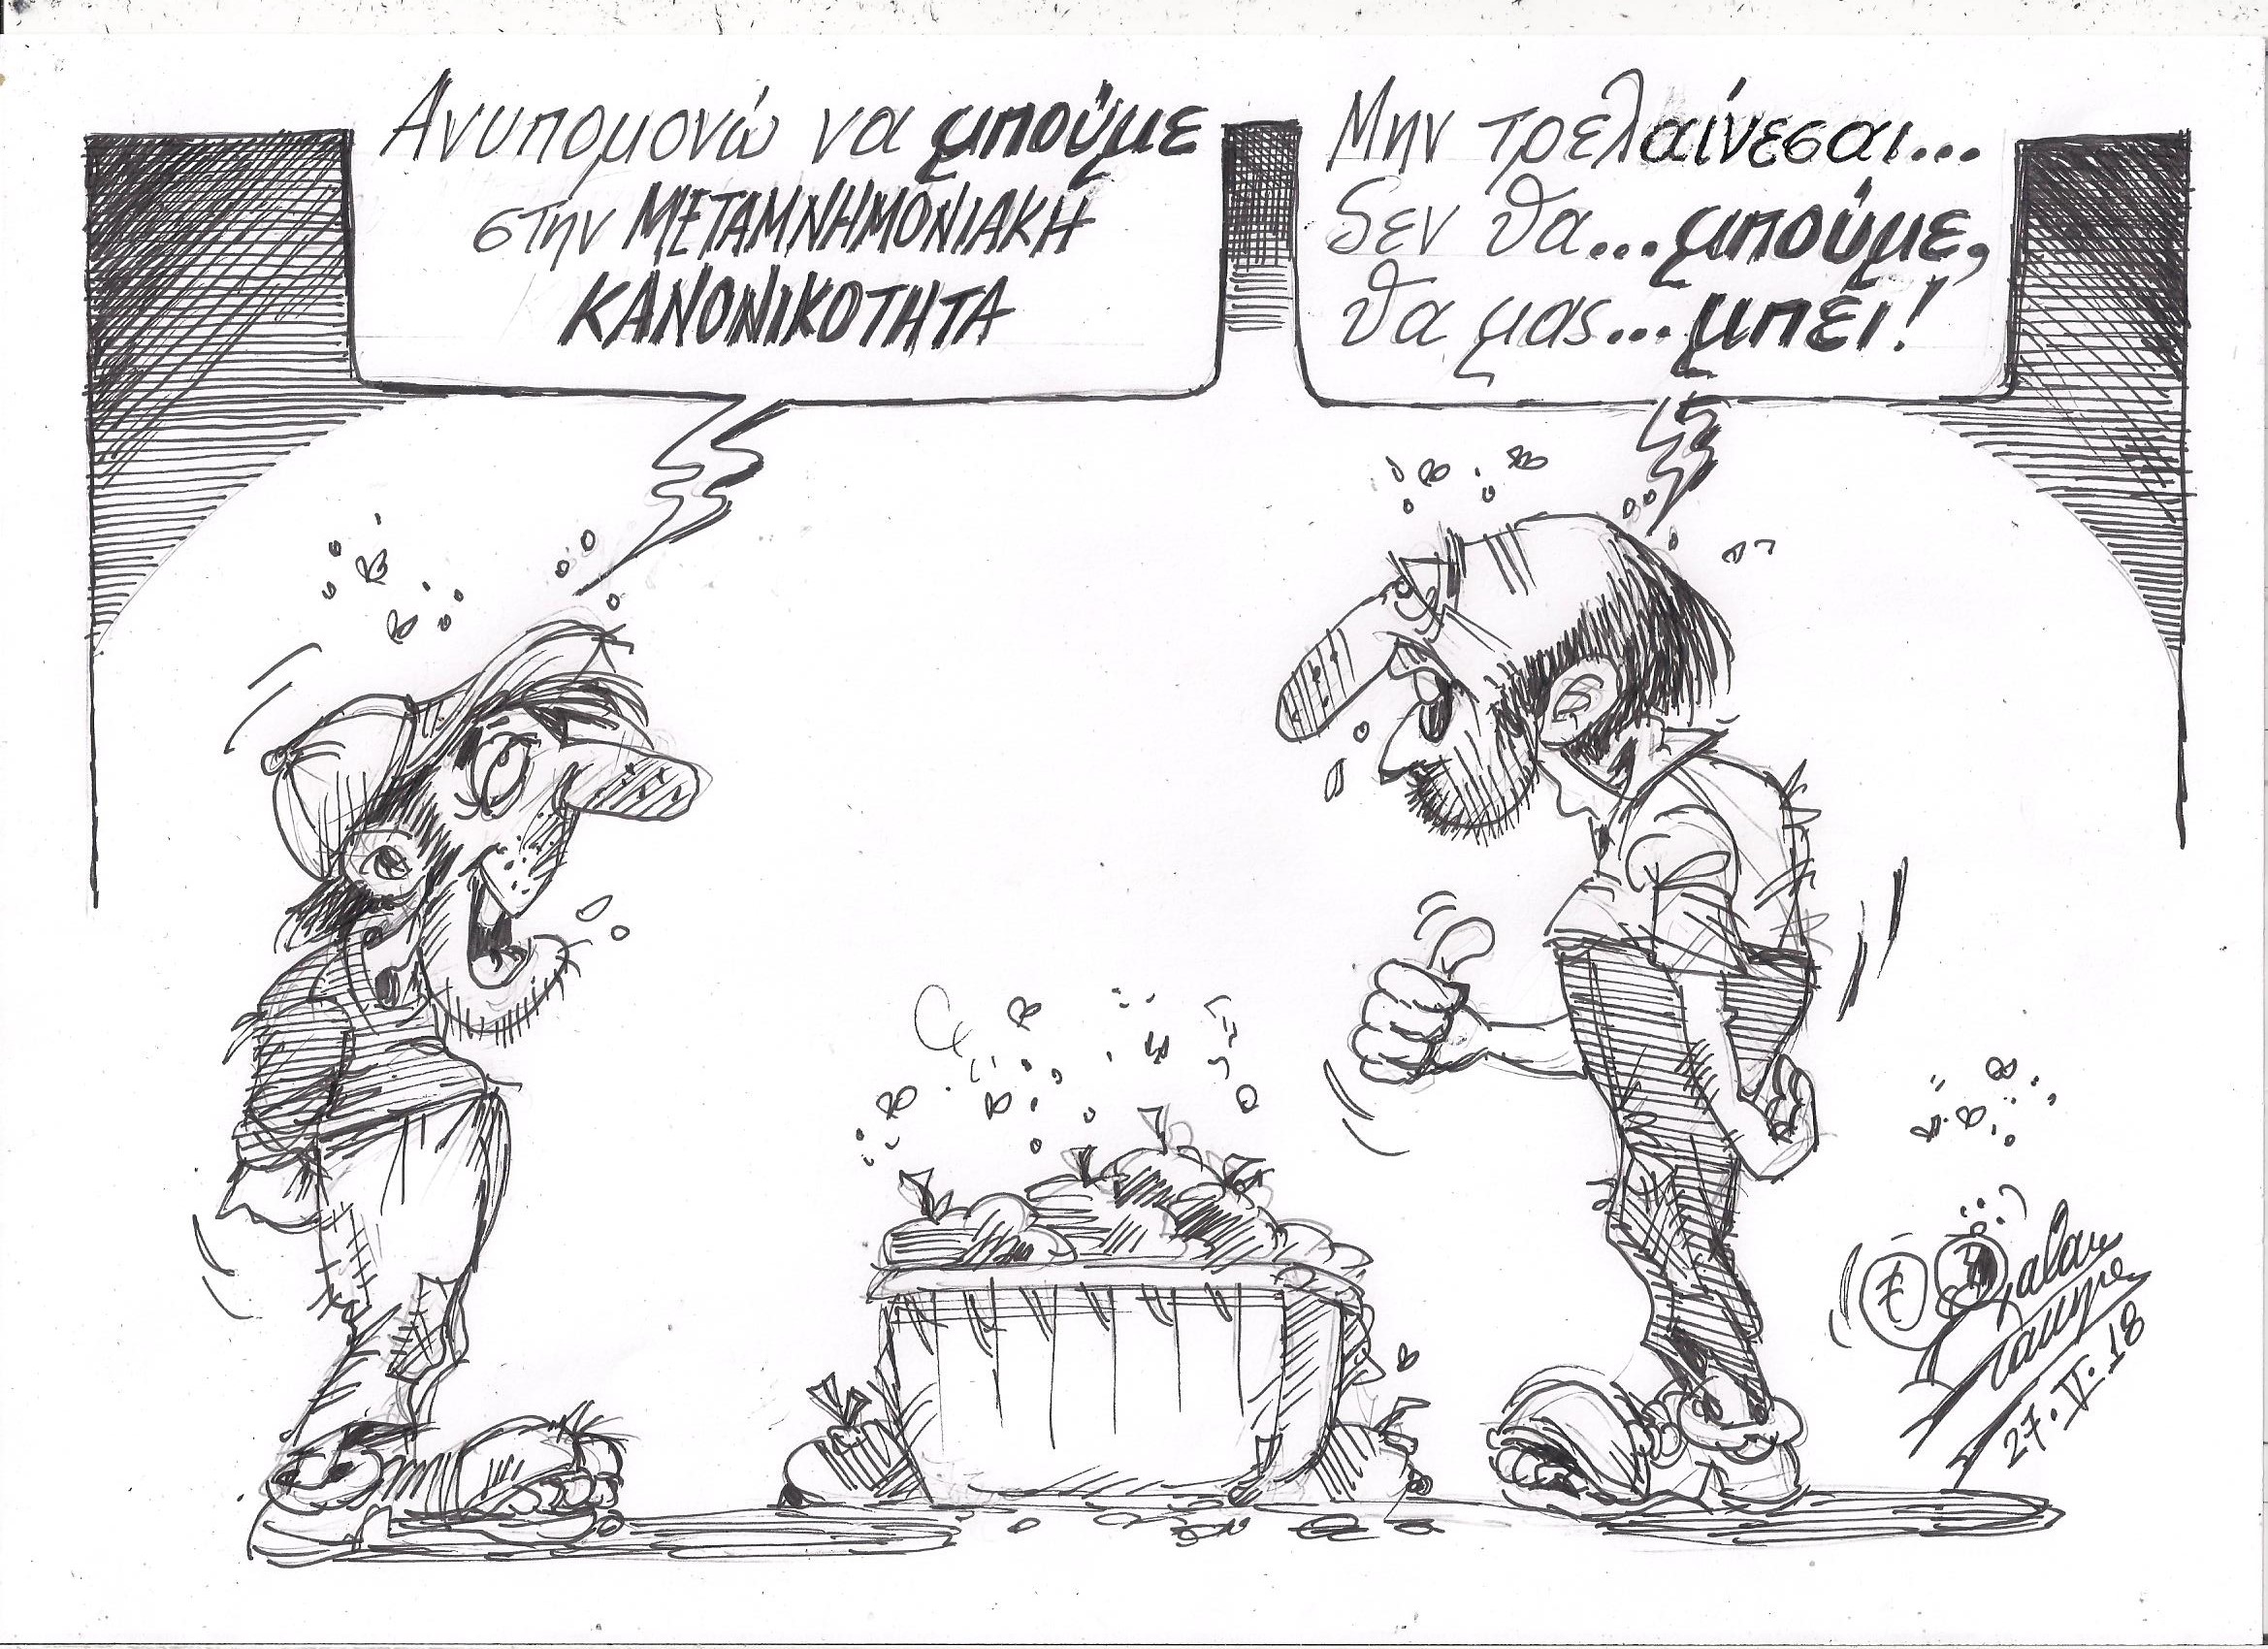 Ανυπομονώ να μπούμε
στην ΜΕΤΑΜΝΗΜΟΝΙΑΚΗ
ΚΑΝΟΝΙΚΟΤΗΤΑ
Μην τρελαίνεσαι...
δεν θα...μπούμε,
θα μας...μπει!
27.V.18